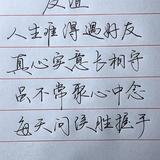 友谊
人生难得遇好友
真心实意长相守
虽不常聚心中念
每天问候胜握手